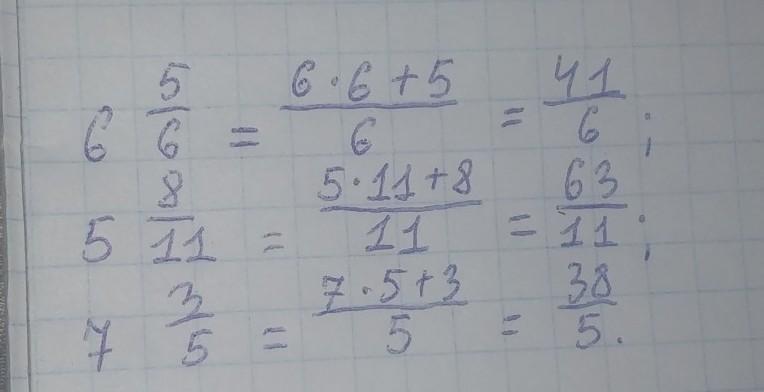 6 5/6 = (6·6+5)/6 = 41/6;
5 8/11 = (5·11+8)/11 = 63/11;
7 3/5 = (7·5+3)/5 = 38/5.